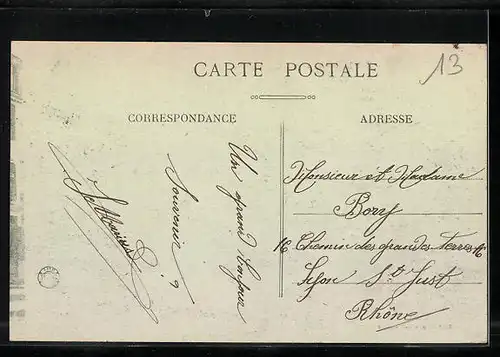 13
CARTE POSTALE
CORRESPONDANCE
ADRESSE
Un grand bonjour
Souvenir
Monsieur et Madame
Bory
16 Chemin des grandes Terres 16
Lyon St Just
Rhône